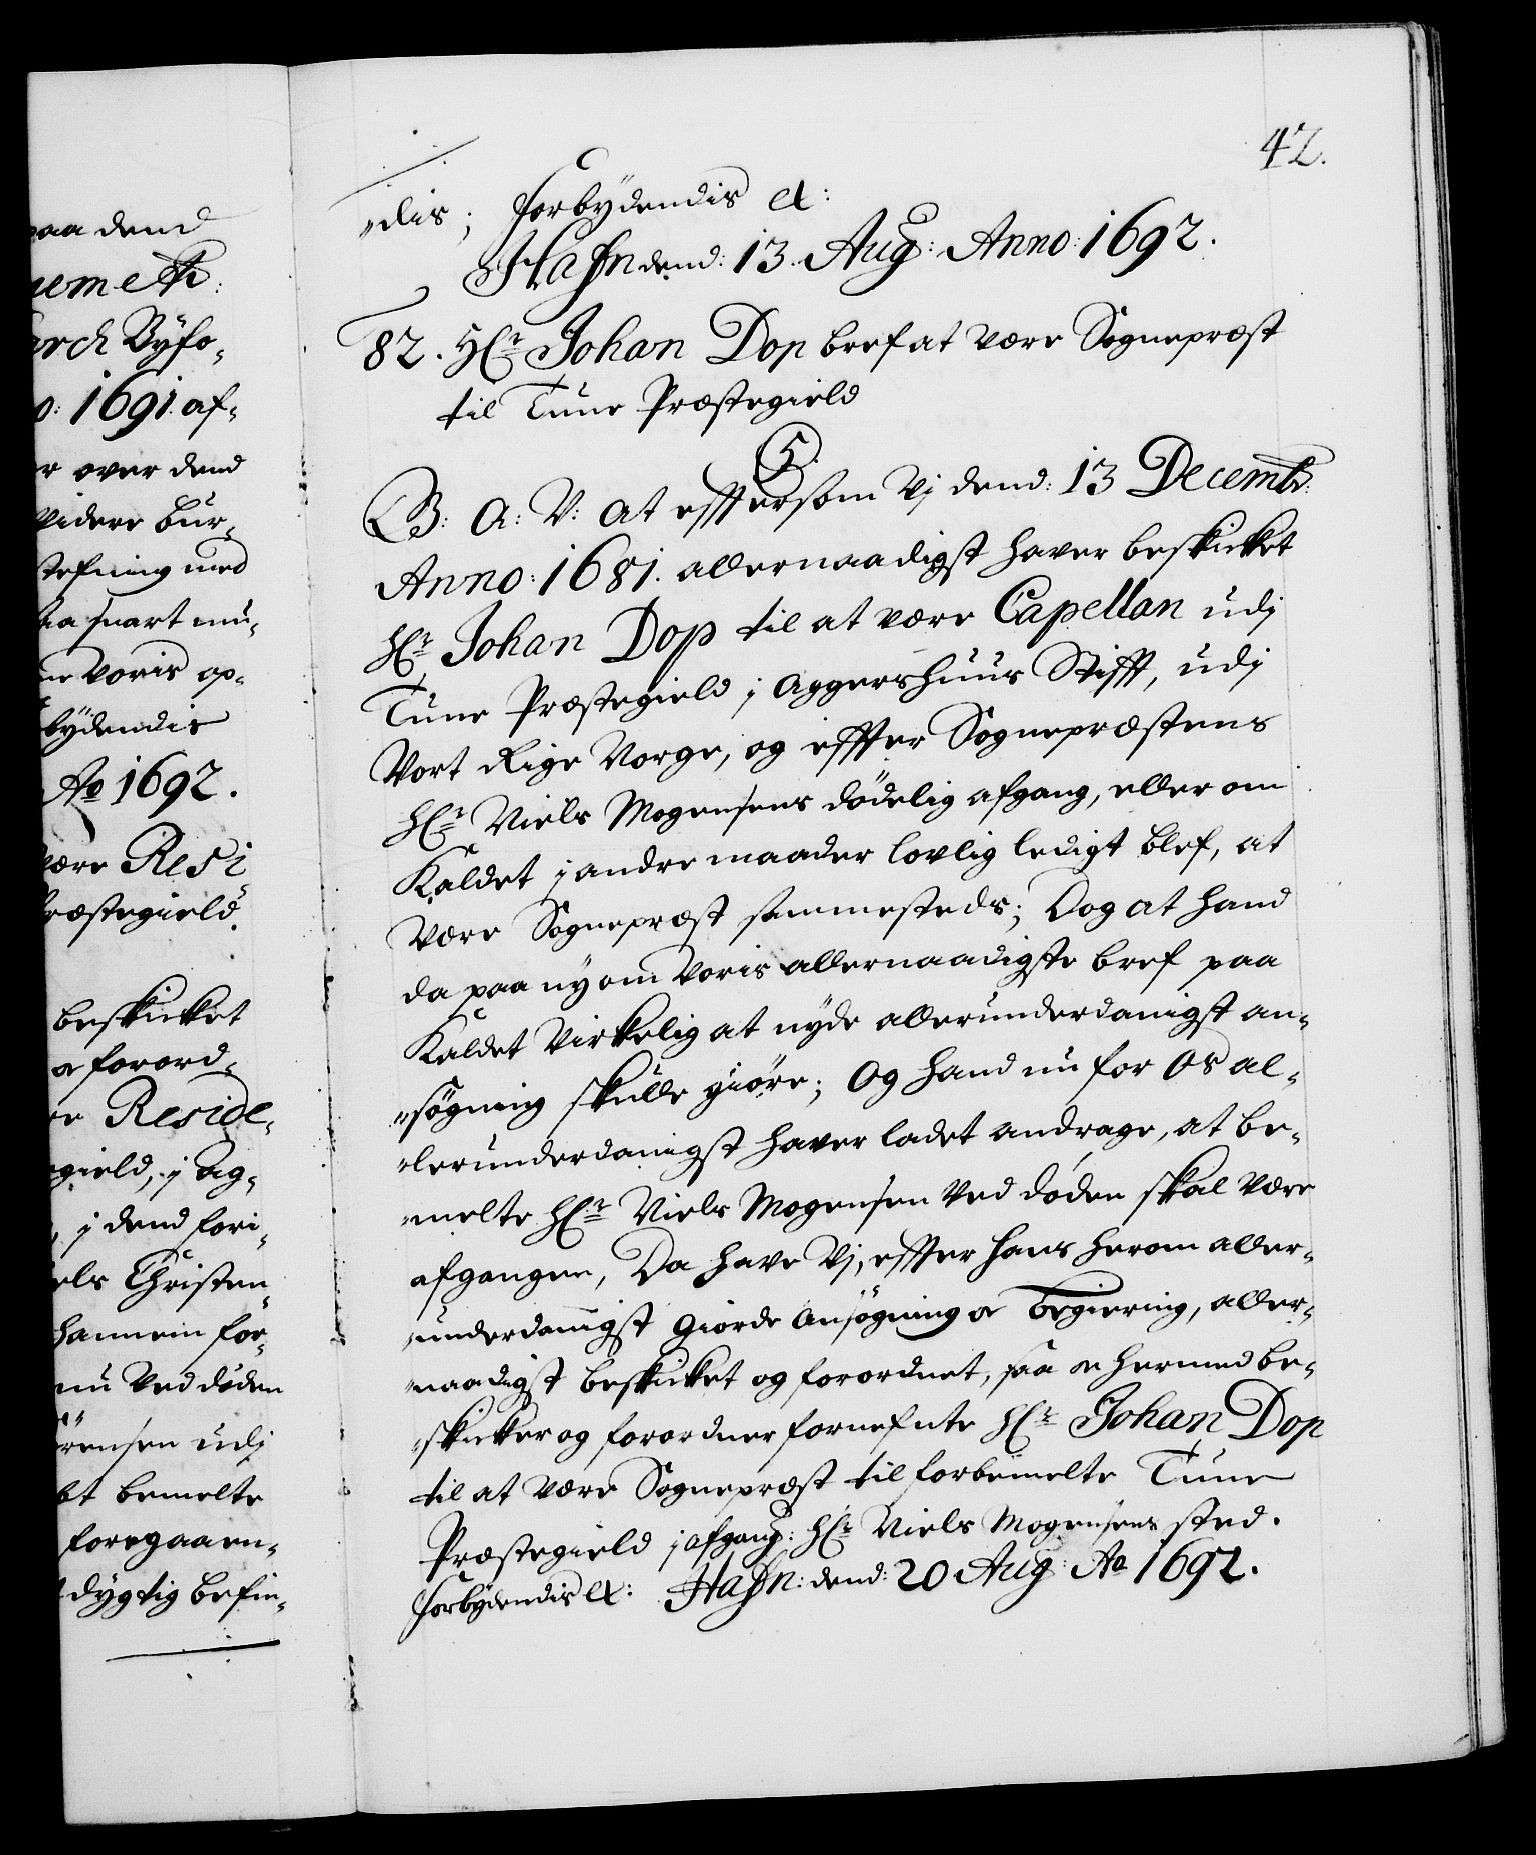 paa dend
nem etc:
arch Byfo-
o: 1691. af-
r over dend
videre bur-
stefning med
saa snart mu-
ne Voris op-
bydendis
Ao 1692.
være Resi
Præstegield.
beskicket
oc forord-
re Reside-
gield, j Ag-
, j dend fori-
els Christen-
hannem for-
nu Ved døden
ørensen udj
bt bemelte
foregaaen-
dygtig befin-
42.
-dis; Forbydendis etc:
Hafn dend: 13. Aug: Anno: 1692.
82. Hr Johan Dop bref at være Sognepræst
til Tune Præstegield
5.
G: A: V: at efftersom Vj dend: 13 Decembr:
Anno: 1681. allernaadigst haver beskicket
Hr Johan Dop til at være Capellan udj
Tune Præstegield j Aggershuus Stifft, udj
Vort Rige Norge, og effter Sognepræstens
Hr Niels Mogensens dødelig afgang, eller om
Kaldet j andre maader lovlig ledigt blef, at
være Sognepræst sammesteds; Dog at hand
da paa ny om Voris allernaadigste bref paa
Kaldet Virkelig at nyde allerunderdanigst an-
-søgning skulle giøre; Og hand nu for Os al-
-lerunderdanigst haver ladet andrage, at be-
-melte Hr Niels Mogensen Ved døden skal være
afgangen, Da have Vj, effter hans herom aller-
-underdanigst giorde Ansøgning oc begiering, aller-
-naadigst beskicket og forordnet, saa oc hermed be-
-skicker og forordner fornefnte Hr Johan Dop
til at være Sognepræst til forbemelte Tune
Præstegield j afgang: Hr Niels Mogensens sted.
Forbydendis etc: Hafn: dend: 20 Aug: Ao 1692.